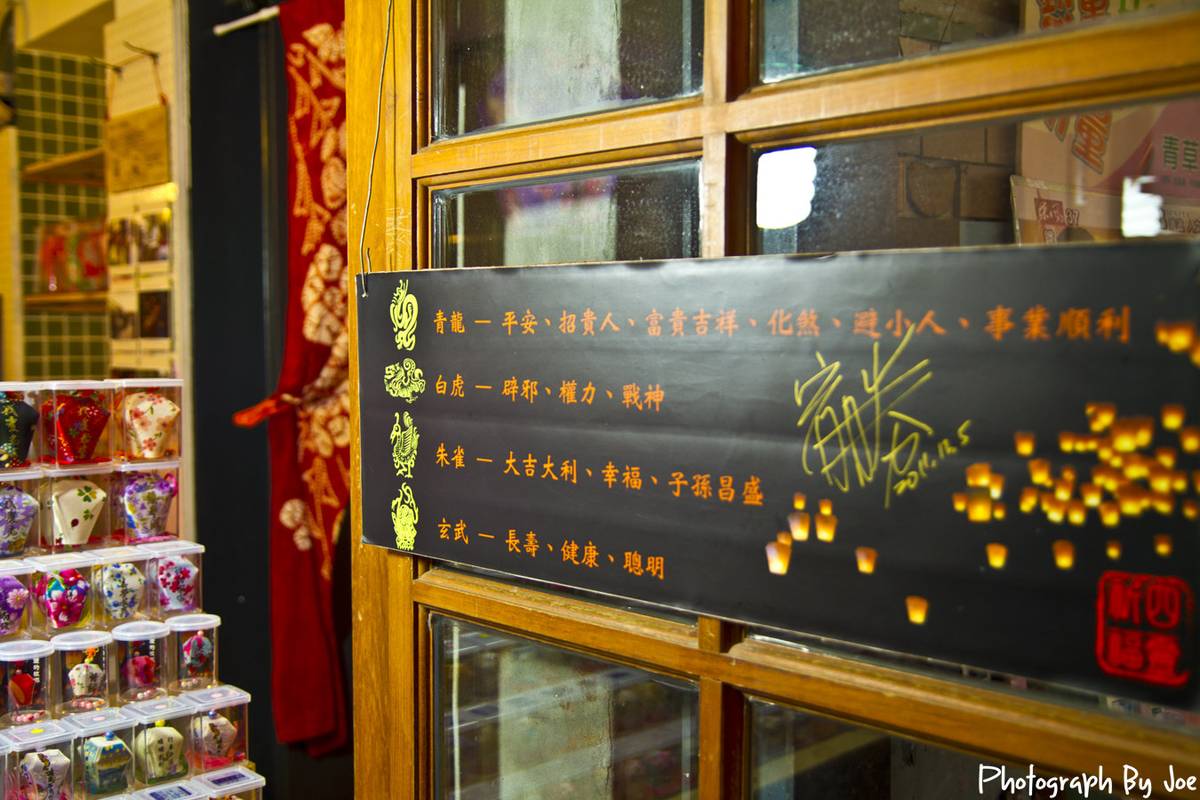 青龍 — 平安、招貴人、富貴吉祥、化煞、避小人、事業順利
白虎 — 辟邪、權力、戰神
朱雀 — 大吉大利、幸福、子孫昌盛
玄武 — 長壽、健康、聰明
2011.12.5
四靈
祈福
青草
Photograph By Joe